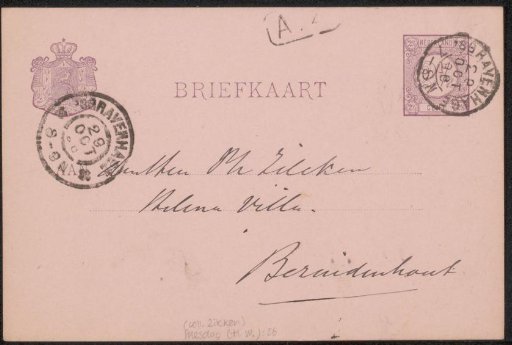 A.
BRIEFKAART
'SGRAVENHAGE
29
OCT
'SGRAVENHAGE
29
OCT
Ph Zilcken
Helena Villa.
Bezuidenhout
(coll. Zilcken)